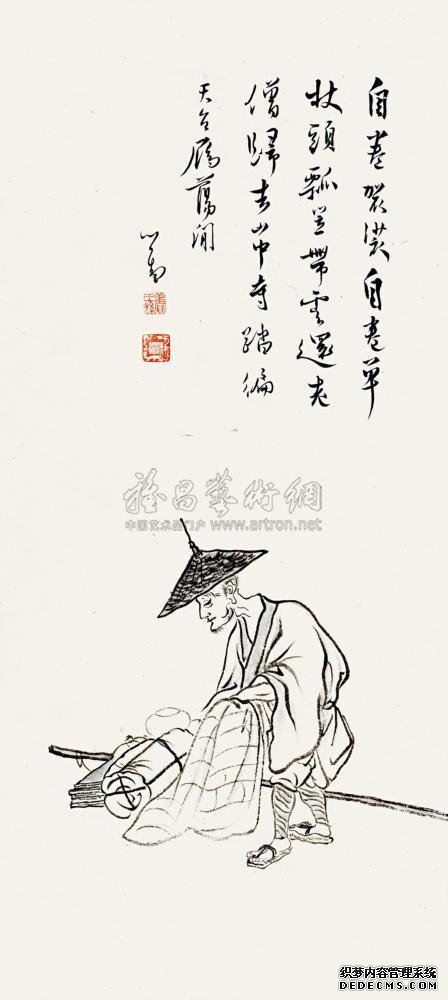 自卷袈裟自卷單
杖頭瓢笠帶雲還老
僧歸去山中寺踏徧
天台雁蕩間
心畬
雅昌藝術網
中国艺术品门户 www.artron.net
织梦内容管理系统
DEDECMS.COM